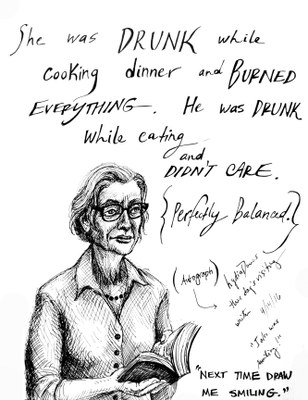 She was DRUNK while
cooking dinner and BURNED
EVERYTHING. He was DRUNK
while eating
and
DIDN'T CARE.
{Perfectly Balanced.}
(Autograph)
writer 9/11/16
"NEXT TIME DRAW
ME SMILING."